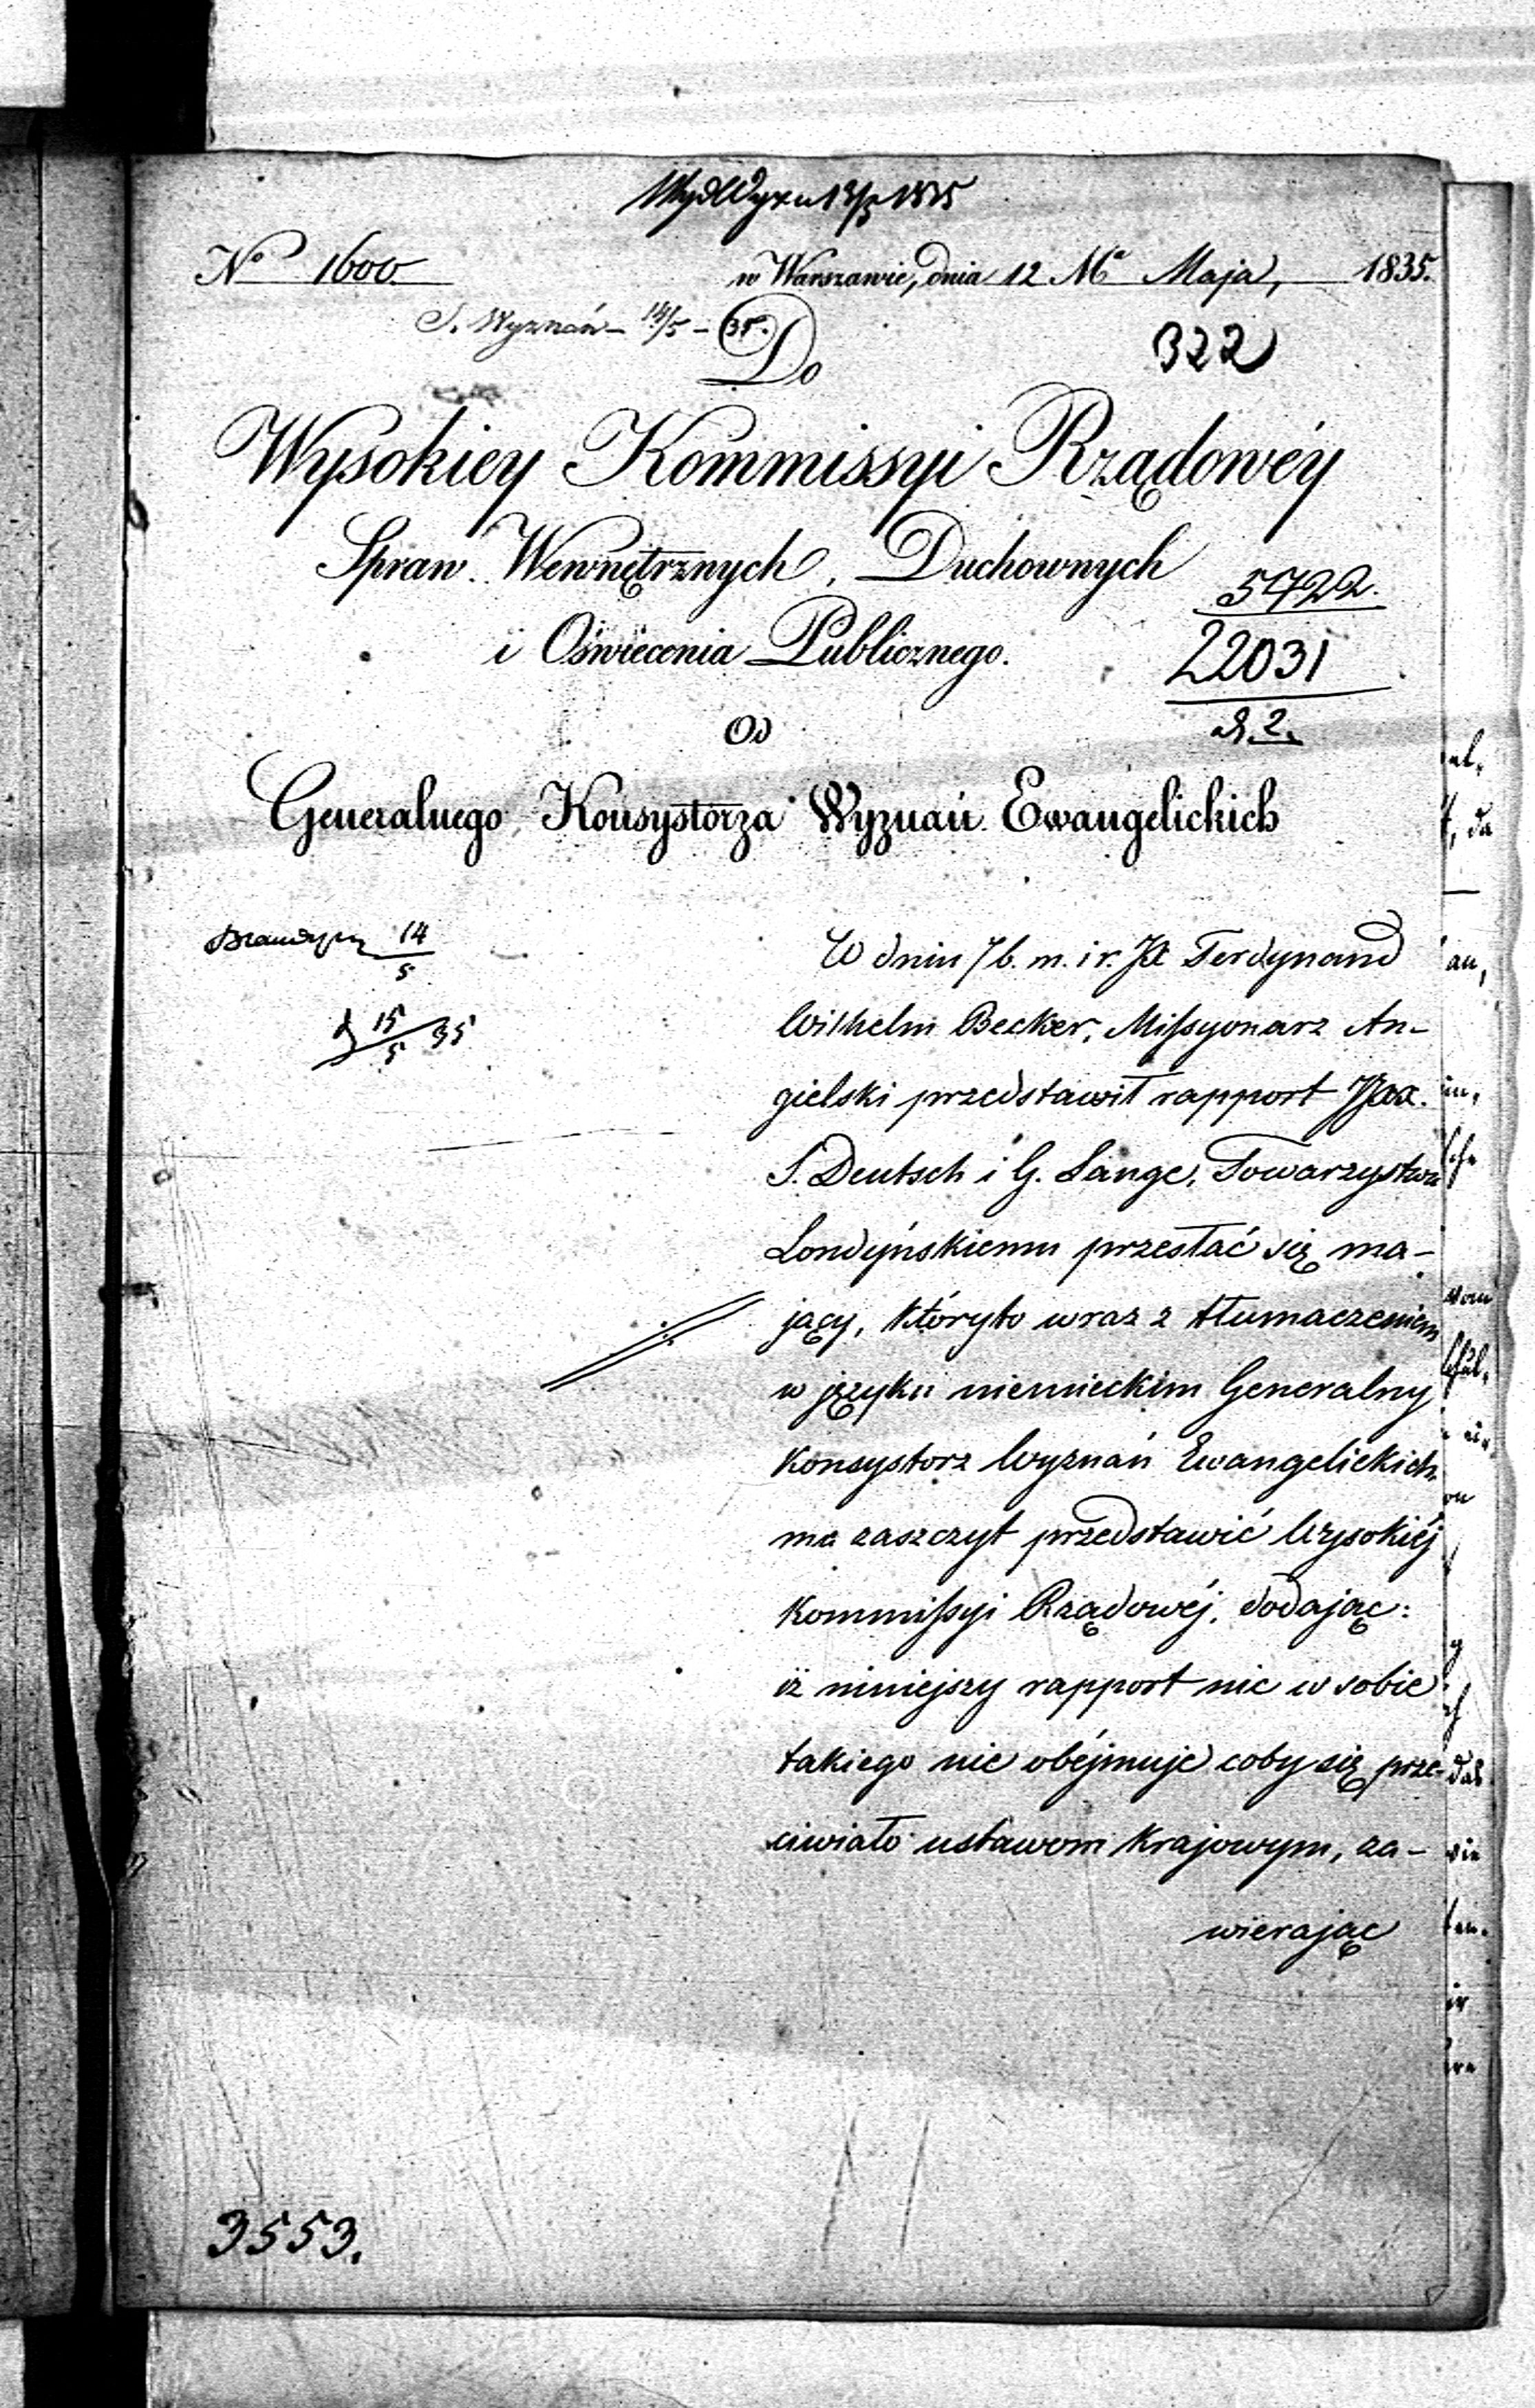 No 1600.
w Warszawie, dnia 12 Ma Maja, 1835.
S. Wyznań - 14/5 - 35.
Do
322
Wysokiey Kommissyi Rządowéy
Spraw Wewnętrznych, Duchownych
5722.
i Oświecenia Publicznego.
22031
2.
Od
Generalnego Konsystorza Wyznań Ewangelickich
14/5
15/5 35
W dniu 7 b. m. i r. JX Ferdynand
Wilhelm Becker, Missyonarz An-
gielski przedstawił rapport JJXX.
S. Deutsch i G. Lange, Towarzystwu
Londyńskiemu przesłać się ma-
jący, któryto wraz z tłumaczeniem
w języku niemieckim Generalny
Konsystorz Wyznań Ewangelickich
ma zaszczyt przedstawić Wysokiéj
Kommissyi Rządowéj, dodając:
iż niniejszy rapport nic w sobie
takiego nie obéjmuje coby się prze-
ciwiało ustawom krajowym, za-
wierając
3553.